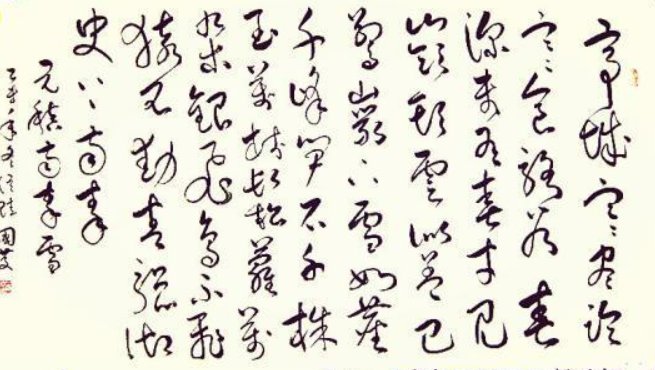 帝城寒尽临
寒食骆谷春
深未有春才见
嶺头雲似盖已
驚巖下雪如塵
千峰笋石千株
玉萬树松蘿萬
朵银飞鸟不飛
猿不动青骢御
史上南秦
元稹南秦雪